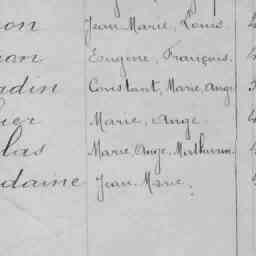 on Jean Marie, Louis
an Eugène, François.
adin Constant, Marie, Ange
ier Marie, Ange.
las Marie, Ange, Mathurin
udaine Jean Marie,